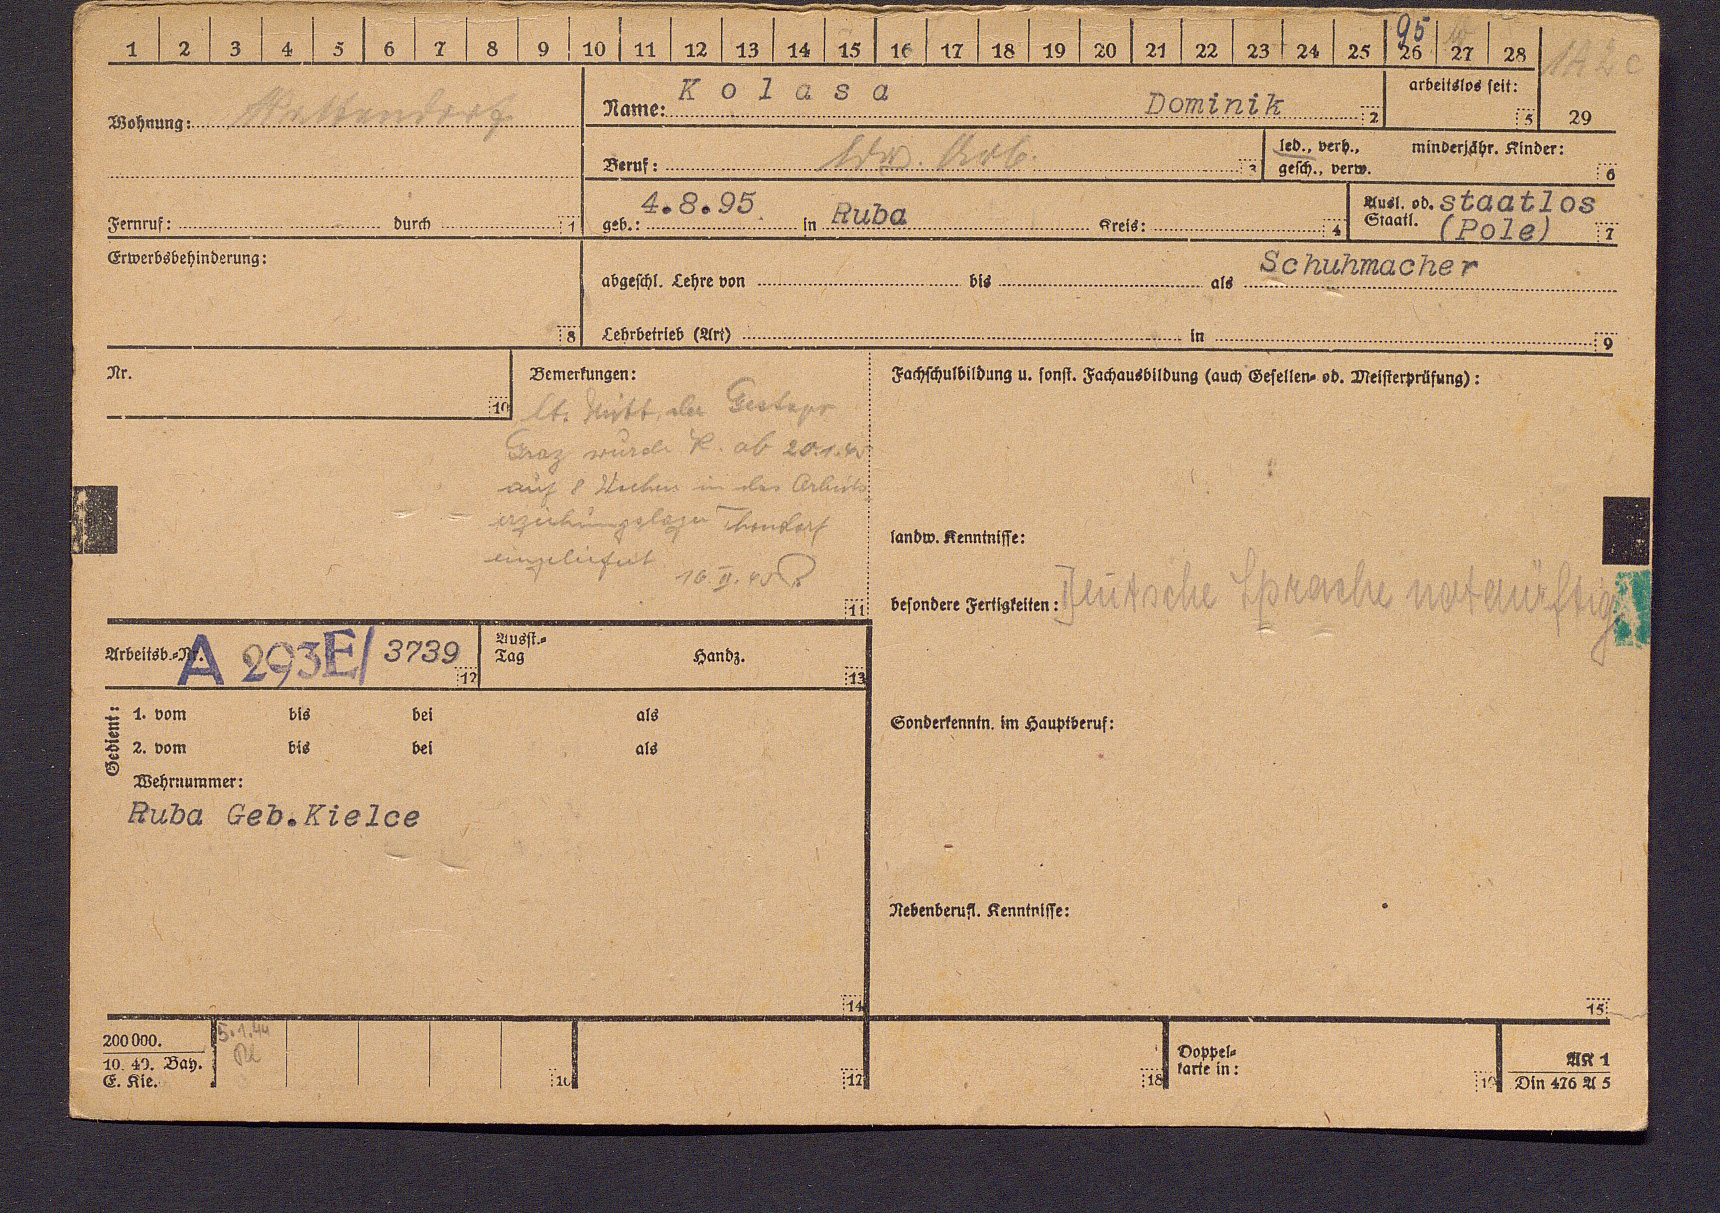 1 2 3 4 5 6 7 8 9 10 11 12 13 14 15 16 17 18 19 20 21 22 23 24 25 26 27 28
95
1A2c
29
Wohnung:
Name: Kolasa Dominik 2
arbeitslos seit: 5
Beruf: ldw. Arb. 3
led., verh., gesch., verw.
minderjähr. Kinder: 6
Fernruf: durch 1
geb.: 4.8.95 in Ruba Kreis: 4
Ausl. od. Staatl. staatlos (Pole) 7
Erwerbsbehinderung: 8
abgeschl. Lehre von bis als Schuhmacher
Lehrbetrieb (Art) in 9
Nr. 10
Bemerkungen:
lt. Mitt. der Gestapo
Graz wurde K. ab 20.1.45
auf 8 Wochen in das Arbeits
erziehungslager Thondorf
eingeliefert
16.II.45
11
Fachschulbildung u. sonst. Fachausbildung (auch Gesellen- od. Meisterprüfung):
landw. Kenntnisse:
besondere Fertigkeiten: Deutsche Sprache notdürftig
Arbeitsb.-Nr. A 293E/ 3739 12
Ausst.-Tag Handz. 13
Sonderkenntn. im Hauptberuf:
Gedient:
1. vom bis bei als
2. vom bis bei als
Wehrnummer:
Ruba Geb.Kielce
14
Nebenberufl. Kenntnisse:
15
200000.
10. 40. Bay.
E. Kie.
5.1.44
16
17
18
Doppel-
karte in: 19
AK 1
Din 476 A 5